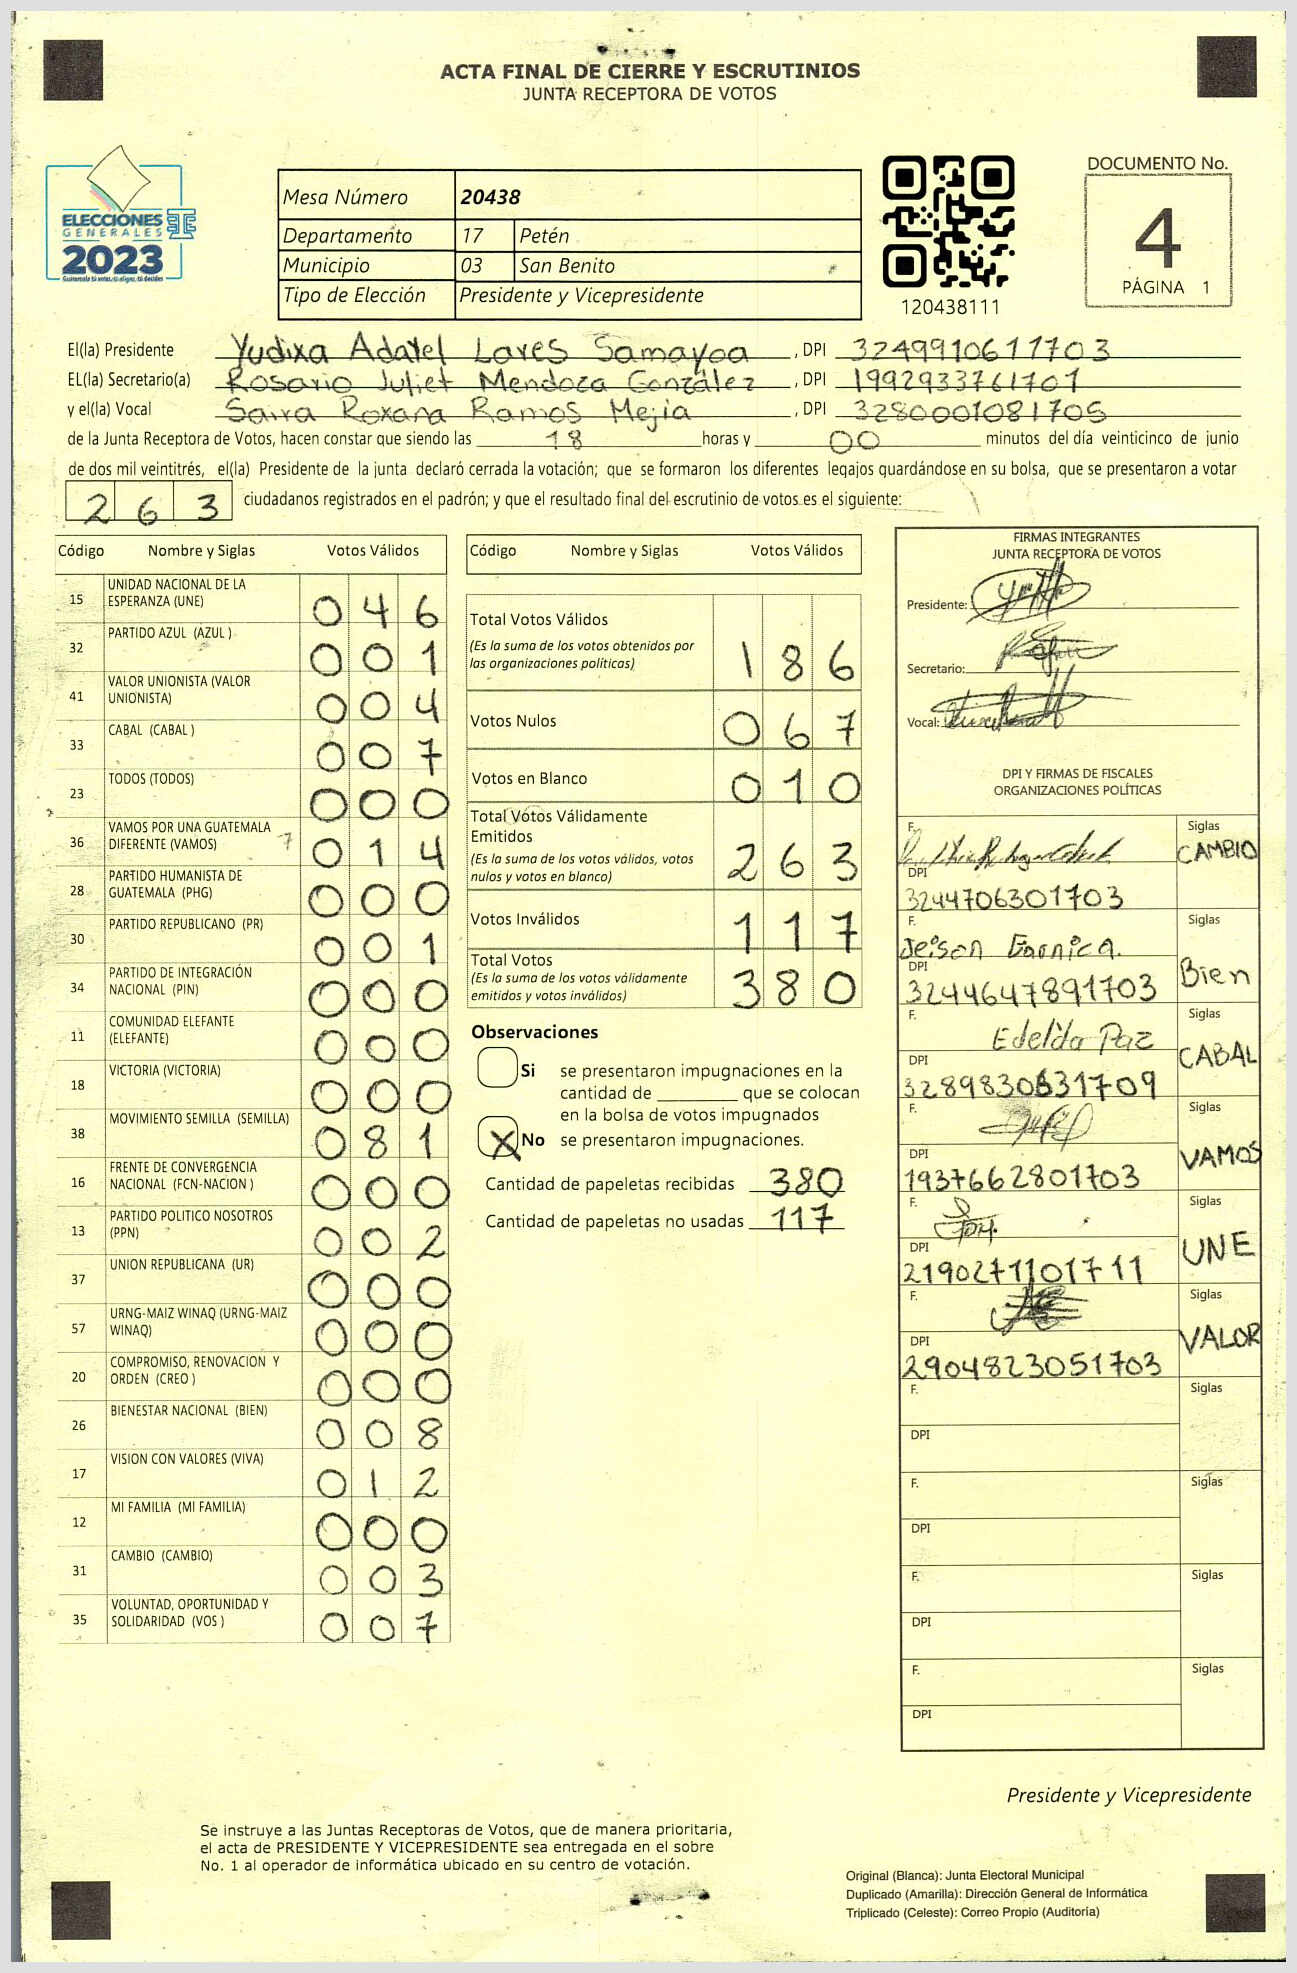 ACTA FINAL DE CIERRE Y ESCRUTINIOS
JUNTA RECEPTORA DE VOTOS
ELECCIONES
GENERALES
2023
Mesa Número 20438
Departamento 17 Petén
Municipio 03 San Benito
Tipo de Elección Presidente y Vicepresidente
120438111
DOCUMENTO No.
4
PÁGINA 1
El(la) Presidente Yudixa Adayel Lares Samayoa , DPI 3249910611703
EL(la) Secretario(a) Rosario Juliet Mendoza González , DPI 1992933761701
y el(la) Vocal Saira Roxana Ramos Mejia , DPI 3280001081705
de la Junta Receptora de Votos, hacen constar que siendo las 18 horas y 00 minutos del día veinticinco de junio
de dos mil veintitrés, el(la) Presidente de la junta declaró cerrada la votación; que se formaron los diferentes legajos guardándose en su bolsa, que se presentaron a votar
263 ciudadanos registrados en el padrón; y que el resultado final del escrutinio de votos es el siguiente:
Código Nombre y Siglas Votos Válidos
15 UNIDAD NACIONAL DE LA ESPERANZA (UNE) 046
32 PARTIDO AZUL (AZUL ) 001
41 VALOR UNIONISTA (VALOR UNIONISTA) 004
33 CABAL (CABAL ) 007
23 TODOS (TODOS) 000
36 VAMOS POR UNA GUATEMALA DIFERENTE (VAMOS) 014
28 PARTIDO HUMANISTA DE GUATEMALA (PHG) 000
30 PARTIDO REPUBLICANO (PR) 001
34 PARTIDO DE INTEGRACIÓN NACIONAL (PIN) 000
11 COMUNIDAD ELEFANTE (ELEFANTE) 000
18 VICTORIA (VICTORIA) 000
38 MOVIMIENTO SEMILLA (SEMILLA) 081
16 FRENTE DE CONVERGENCIA NACIONAL (FCN-NACION ) 000
13 PARTIDO POLITICO NOSOTROS (PPN) 002
37 UNION REPUBLICANA (UR) 000
57 URNG-MAIZ WINAQ (URNG-MAIZ WINAQ) 000
20 COMPROMISO, RENOVACION Y ORDEN (CREO ) 000
26 BIENESTAR NACIONAL (BIEN) 008
17 VISION CON VALORES (VIVA) 012
12 MI FAMILIA (MI FAMILIA) 000
31 CAMBIO (CAMBIO) 003
35 VOLUNTAD, OPORTUNIDAD Y SOLIDARIDAD (VOS ) 007
Código Nombre y Siglas Votos Válidos
Total Votos Válidos 186
(Es la suma de los votos obtenidos por
las organizaciones políticas)
Votos Nulos 067
Votos en Blanco 010
Total Votos Válidamente
Emitidos 263
(Es la suma de los votos válidos, votos
nulos y votos en blanco)
Votos Inválidos 117
Total Votos 380
(Es la suma de los votos válidamente
emitidos y votos inválidos)
Observaciones
Si se presentaron impugnaciones en la
cantidad de ________ que se colocan
en la bolsa de votos impugnados
X No se presentaron impugnaciones.
Cantidad de papeletas recibidas 380
Cantidad de papeletas no usadas 117
FIRMAS INTEGRANTES
JUNTA RECEPTORA DE VOTOS
Presidente:
Secretario:
Vocal:
DPI Y FIRMAS DE FISCALES
ORGANIZACIONES POLÍTICAS
F. Siglas
CAMBIO
DPI
3244706301703
F. Siglas
Jeison Garnica. Bien
DPI
3244647891703
F. Siglas
Edelda Paz CABAL
DPI
3289830631709
F. Siglas
VAMOS
DPI
1937662801703
F. Siglas
UNE
DPI
2190271101711
F. Siglas
VALOR
DPI
2904823051703
F. Siglas
DPI
F. Siglas
DPI
F. Siglas
DPI
F. Siglas
DPI
Presidente y Vicepresidente
Se instruye a las Juntas Receptoras de Votos, que de manera prioritaria,
el acta de PRESIDENTE Y VICEPRESIDENTE sea entregada en el sobre
No. 1 al operador de informática ubicado en su centro de votación.
Original (Blanca): Junta Electoral Municipal
Duplicado (Amarilla): Dirección General de Informática
Triplicado (Celeste): Correo Propio (Auditoría)